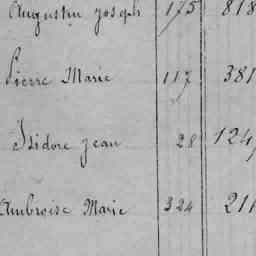 Augustin Joseph 175 818
Pierre Marie 117 381
Isidore Jean 28 124
Ambroise Marie 324 211